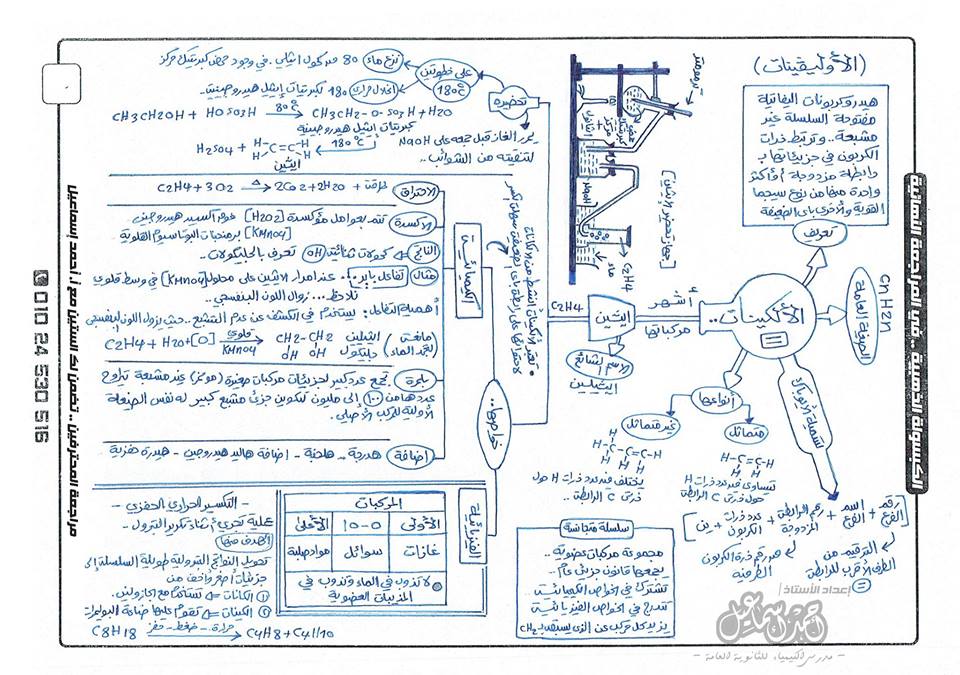 (الأوليفينات)
هيدروكربونات اليفاتية
مفتوحة السلسلة غير
مشبعة.. وترتبط ذرات
الكربون في جزيئاتها بـ
رابطة مزدوجة أو أكثر
واحدة منها من نوع سيجما
القوية والأخرى باى الضعيفة
تعريف
CnH2n
الصيغة العامة
الألكينات..
أشهر
مركباتها
إيثين
C2H4
الاسم الشائع
الإيثيلين
أنواعها
متماثل
غير متماثل
تتساوى فيه عدد ذرات H
حول ذرتى C الرابطة
يختلف فيه عدد ذرات H حول
ذرتى C الرابطة..
تسمية الأيوباك
[رقم الفرع + اسم الفرع + رقم الرابطة المزدوجة + عدد ذرات الكربون + ين]
الترقيم من
الطرف الأقرب للرابطة
هو رقم ذرة الكربون
الطرفية
سلسلة متجانسة
مجموعة مركبات عضوية..
يجمعها قانون جزيئى عام..
تشترك في الخواص الكيميائية
تتدرج في الخواص الفيزيائية
يزيد كل مركب عن الذى يسبقه بـ CH2
[جهاز تحضير الإيثين]
ترمومتر
NaOH
ماء
C2H4
تحضيره
على خطوتين
180°C
نزع ماء 80 من كحول ايثيلى.. في وجود حمض كبريتيك مركز
انحلال حرارى 180 لكبريتات إيثيل هيدروجينية..
CH3CH2OH + HOSO3H 80°C CH3CH2-O-SO3H + H2O
كبريتات ايثيل هيدروجينية
180°C
H2SO4 +
ايثين
يمرر الغاز قبل جمعه على NaOH
لتنقيته من الشوائب..
خواصها..
الكيميائية
* تعتبر الألكينات أنشط من الالكانات
لاحتوائها على رابطة باى الضعيفة سهلة الكسر
الاحتراق
C2H4 + 3O2 Δ 2CO2 + 2H2O + طاقة
الأكسدة
تتم بعوامل مؤكسدة [H2O2] فوق أكسيد هيدروجين
[KMnO4] برمنجنات البوتاسيوم القلوية
الناتج
كحولات ثنائية OH تعرف بالجليكولات..
مثال
تفاعل باير: عند امرار الاثين على محلول [KMnO4] في وسط قلوى
نلاحظ... زوال اللون البنفسجى..
أهمية التفاعل: يستخدم في الكشف عن عدم التشبع.. حيث يزول اللون البنفسجى
C2H4 + H2O + [O] قلوى KMnO4 CH2-CH2
OH OH
إيثيلين
جليكول
(مانع
لتجمد الماء)
بلمرة
تجمع عدد كبير لجزيئات مركبات صغيرة (مونمر) غير مشبعة تتراوح
عددها من 100 إلى مليون لتكوين جزئ مشبع كبير له نفس الصيغة
الأولية للمركب الأصلى.
إضافة
هدرجة - هلجنة - اضافة هاليد هيدروجين - هيدرة حفزية
الفيزيائية
المركبات
الأولى
5-15
الأعلى
غازات
سوائل
مواد صلبة
* لا تذوب في الماء وتذوب في
المذيبات العضوية
- التكسير الحرارى الحفزى -
عملية تجرى أثناء تكرير البترول -
الهدف منها
تحويل النواتج البترولية طويلة السلسلة إلى
جزيئات أصغر وأخف من
1 الكانات تستخدم مع الجازولين.
2 الكينات تقوم عليها صناعة البوليمرات
C8H18 حرارة - ضغط - حفز C4H8 + C4H10
إعداد الأستاذ/
- مدرس الكيمياء للثانوية العامة -
الكبسولة الذهبية .. في المراجعة النهائية
مراجعة المحترفين .. تضمن لك الستين مع أ. أحمد إسماعين
010 24 530 516